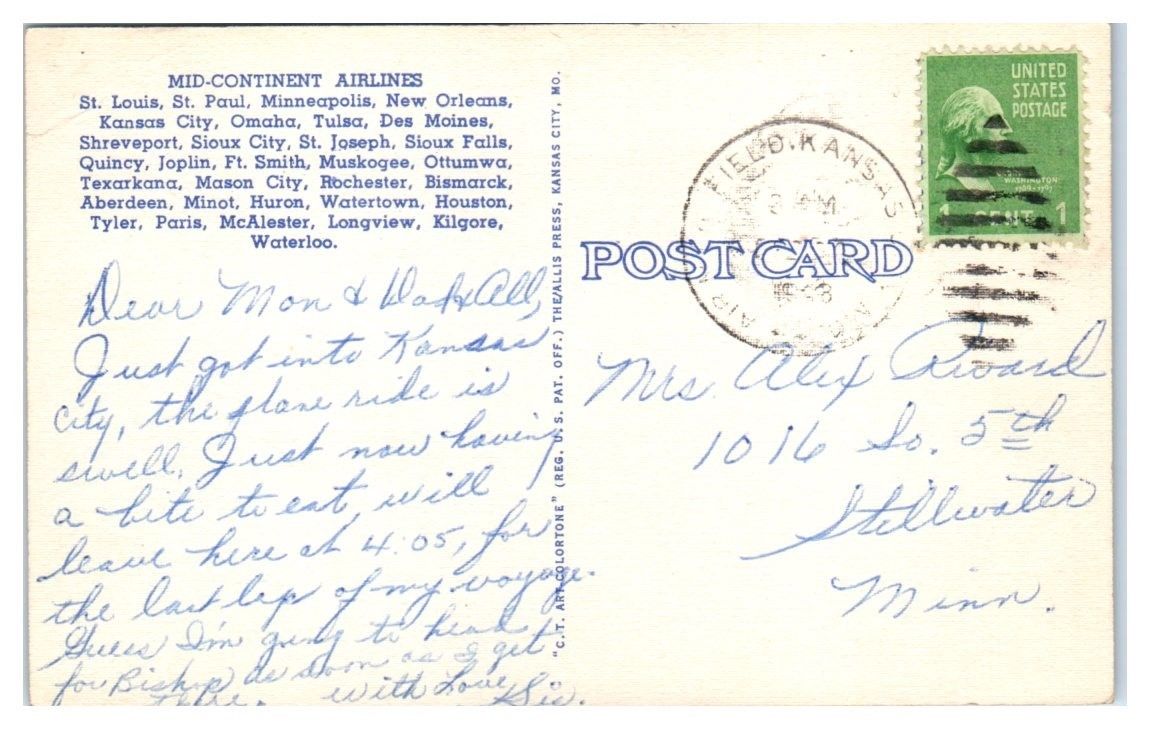 MID-CONTINENT AIRLINES
St. Louis, St. Paul, Minneapolis, New Orleans,
Kansas City, Omaha, Tulsa, Des Moines,
Shreveport, Sioux City, St. Joseph, Sioux Falls,
Quincy, Joplin, Ft. Smith, Muskogee, Ottumwa,
Texarkana, Mason City, Rochester, Bismarck,
Aberdeen, Minot, Huron, Watertown, Houston,
Tyler, Paris, McAlester, Longview, Kilgore,
Waterloo.
Dear Mon & Dad & All,
Just got into Kansas
City, the plane ride is
swell. Just now having
a bite to eat, will
leave here at 4:05, for
the last lap of my voyage.
Guess I'm going to head
for Bishop as soon as I get
there. with Love Sis.
"C.T. ART-COLORTONE" (REG. U. S. PAT. OFF.) THE/ALLIS PRESS, KANSAS CITY, MO.
POST CARD
FIELD, KANSAS
AIR
UNITED
STATES
POSTAGE
WASHINGTON
1789-1797
1 CENT 1
Mrs. Alex
1016 So. 5th
Stillwater
Minn.